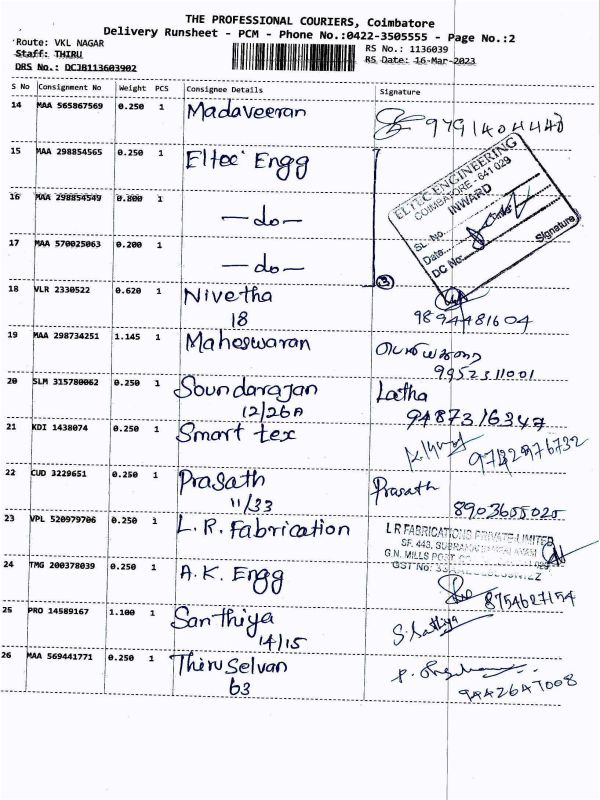 THE PROFESSIONAL COURIERS, Coimbatore
Delivery Runsheet - PCM - Phone No.:0422-3505555 - Page No.:2
Route: VKL NAGAR
RS No.: 1136039
Staff: THIRU
RS Date: 16-Mar-2023
DRS No.: DCJB113603902
S No Consignment No Weight PCS Consignee Details Signature
14 MAA 565867569 0.250 1 Madaveeran 9791404440
15 MAA 298854565 0.250 1 Eltec Engg
ELTEC ENGINEERING
COIMBATORE - 641 029
INWARD
SL. No.
Date
DC No.
Signature
16 MAA 298854549 0.800 1 -do-
17 MAA 570025063 0.200 1 -do-
3
18 VLR 2330522 0.620 1 Nivetha
18 9894481604
19 MAA 298734251 1.145 1 Maheswaran
9952311001
20 SLM 315780062 0.250 1 Soundarajan Latha
12/26A 9487316347
21 KDI 1438074 0.250 1 Smart tex
22 CUD 3229651 0.250 1 Prasath Prasath
11/33 8903655025
23 VPL 520979706 0.250 1 L.R. Fabrication
L R FABRICATIONS PRIVATE LIMITED
SF. 443,
G.N. MILLS POST
GST No:
24 TMG 200378039 0.250 1 A.K. Engg 8754627154
25 PRO 14589167 1.100 1 Santhiya S. Sathiya
14/15
26 MAA 569441771 0.250 1 Thiruselvan
63 9442647008